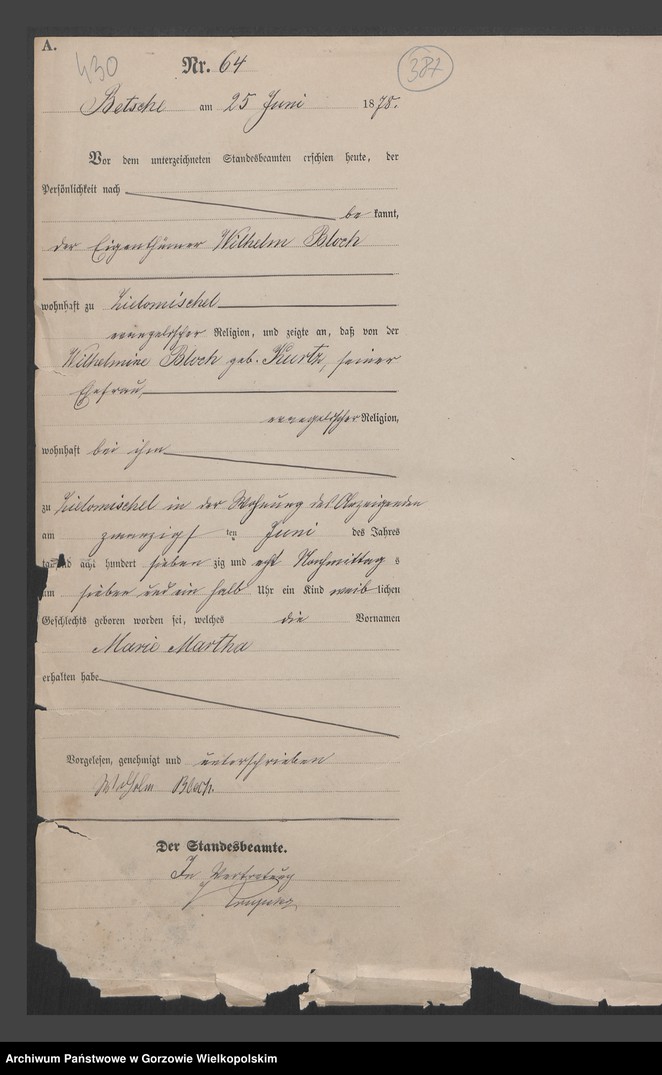 A.
430
Nr. 64
387
Betsche am 25 Juni 1878.
Vor dem unterzeichneten Standesbeamten erschien heute, der
Persönlichkeit nach
be kannt,
der Eigenthümer Wilhelm Bloch
wohnhaft zu Zielomischel
evangelischer Religion, und zeigte an, daß von der
Wilhelmine Bloch geb. Kurtz, seiner
Ehefrau
evangelischer Religion,
wohnhaft bei ihm
zu Zielomischel in der Wohnung des Anzeigenden
am zwanzigsten Juni des Jahres
tausend acht hundert sieben zig und acht Nachmittag s
um sieben und ein halb Uhr ein Kind weib lichen
Geschlechts geboren worden sei, welches die Vornamen
Marie Martha
erhalten habe
Vorgelesen, genehmigt und unterschrieben
Wilhelm Bloch.
Der Standesbeamte.
In Vertretung
Archiwum Państwowe w Gorzowie Wielkopolskim